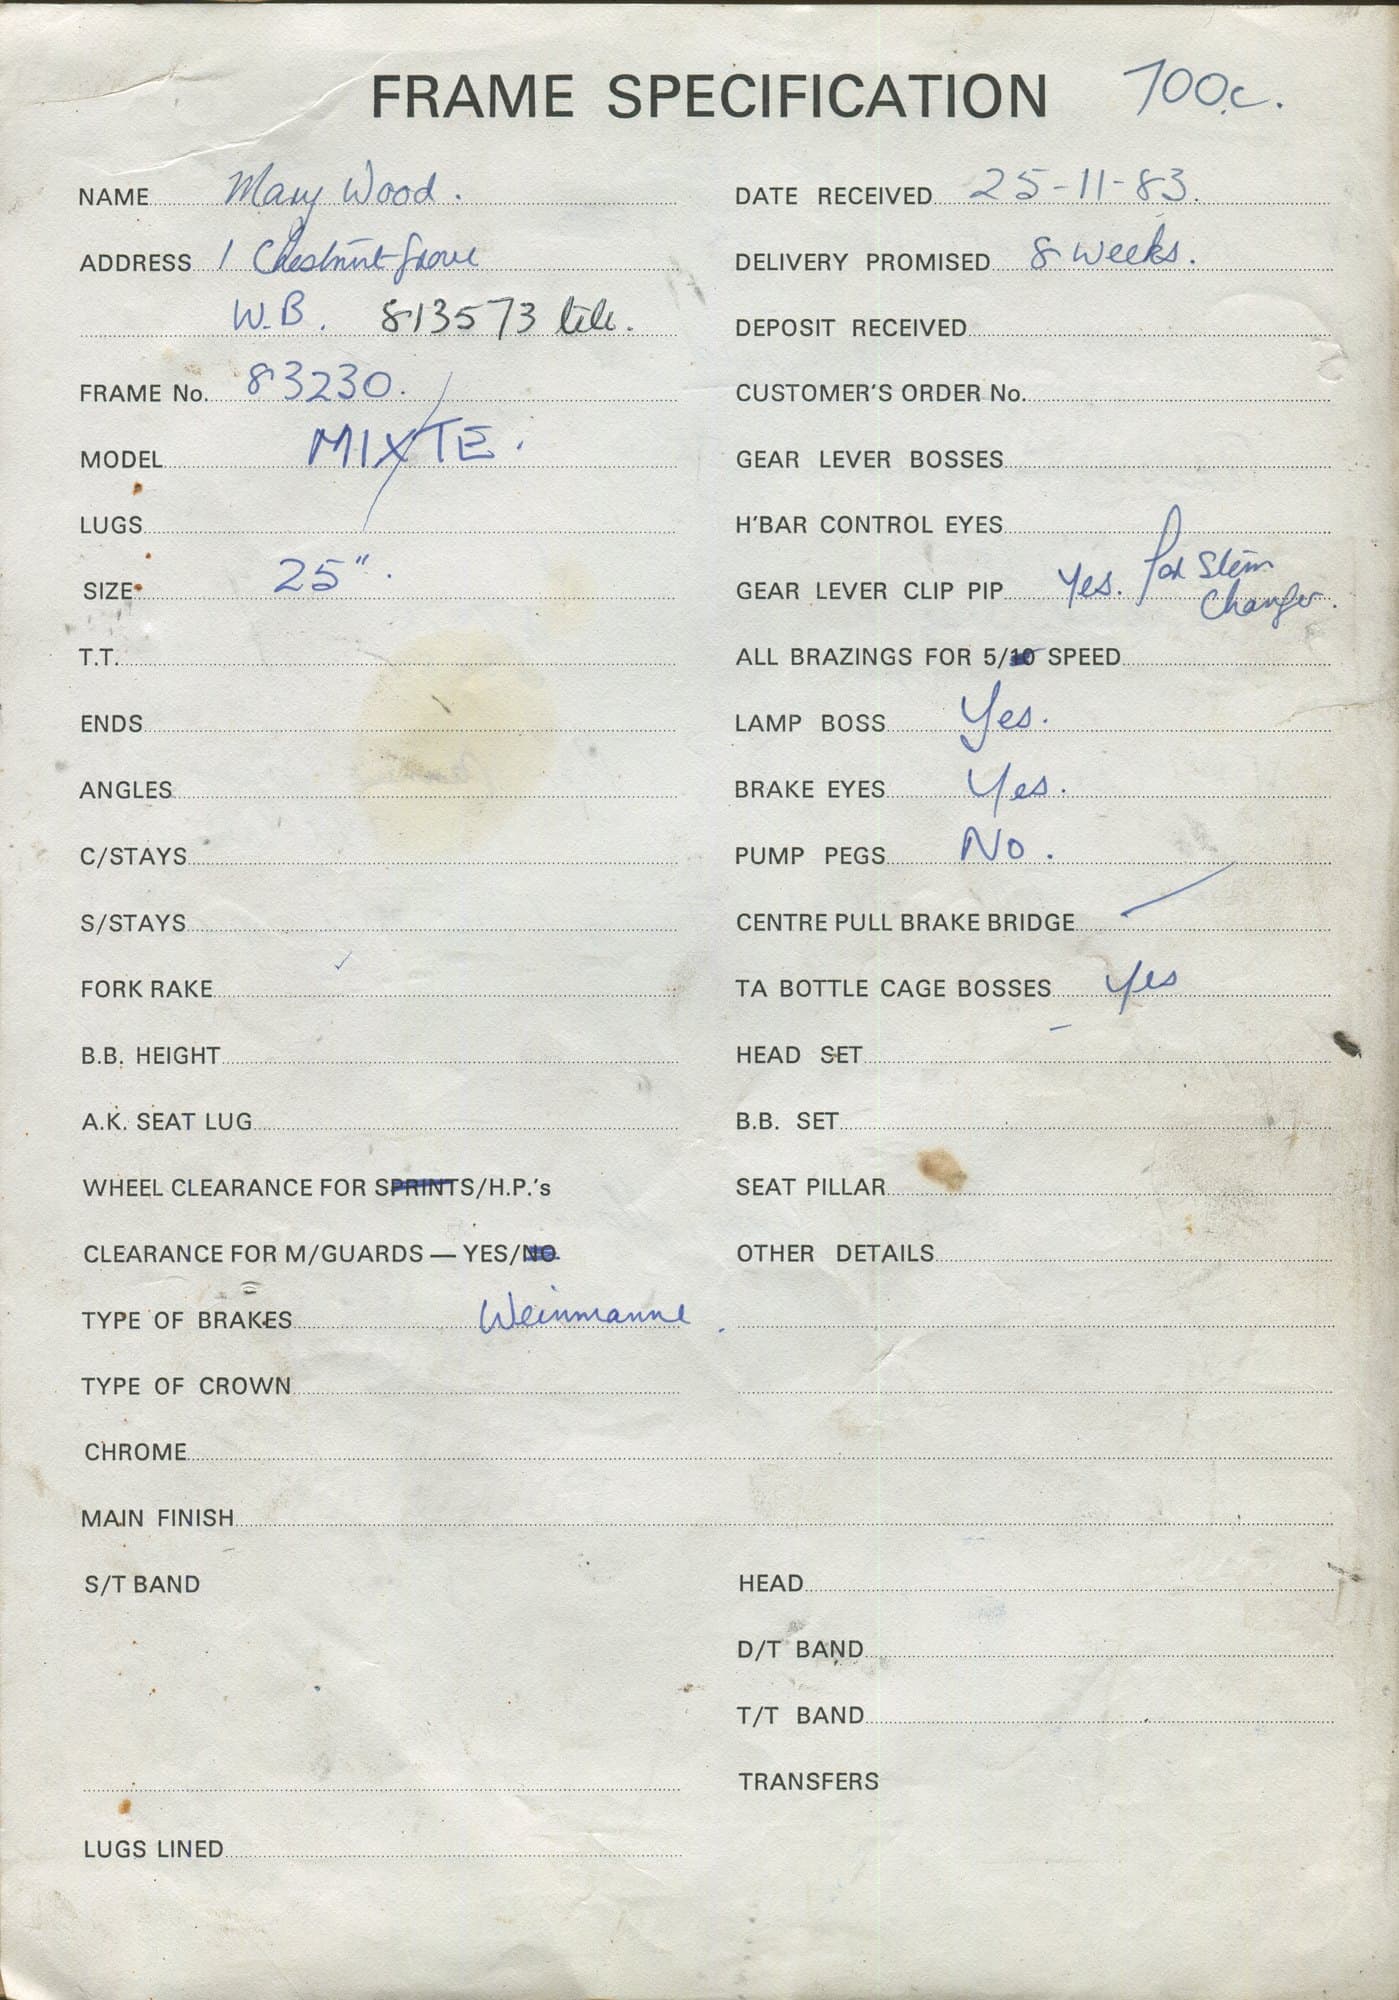 FRAME SPECIFICATION 700.c.
NAME Mary Wood.
ADDRESS 1 Chestnut Grove
W.B. 813573 tele.
FRAME No. 83230.
MODEL MIXTE.
LUGS
SIZE 25".
T.T.
ENDS
ANGLES
C/STAYS
S/STAYS
FORK RAKE
B.B. HEIGHT
A.K. SEAT LUG
WHEEL CLEARANCE FOR SPRINTS/H.P.'s
CLEARANCE FOR M/GUARDS — YES/NO
TYPE OF BRAKES Weinmanne.
TYPE OF CROWN
DATE RECEIVED 25-11-83.
DELIVERY PROMISED 8 weeks.
DEPOSIT RECEIVED
CUSTOMER'S ORDER No.
GEAR LEVER BOSSES
H'BAR CONTROL EYES
GEAR LEVER CLIP PIP Yes. For Stem
Changer.
ALL BRAZINGS FOR 5/10 SPEED
LAMP BOSS Yes.
BRAKE EYES Yes.
PUMP PEGS No.
CENTRE PULL BRAKE BRIDGE
TA BOTTLE CAGE BOSSES Yes
HEAD SET
B.B. SET
SEAT PILLAR
OTHER DETAILS
CHROME
MAIN FINISH
S/T BAND
LUGS LINED
HEAD
D/T BAND
T/T BAND
TRANSFERS